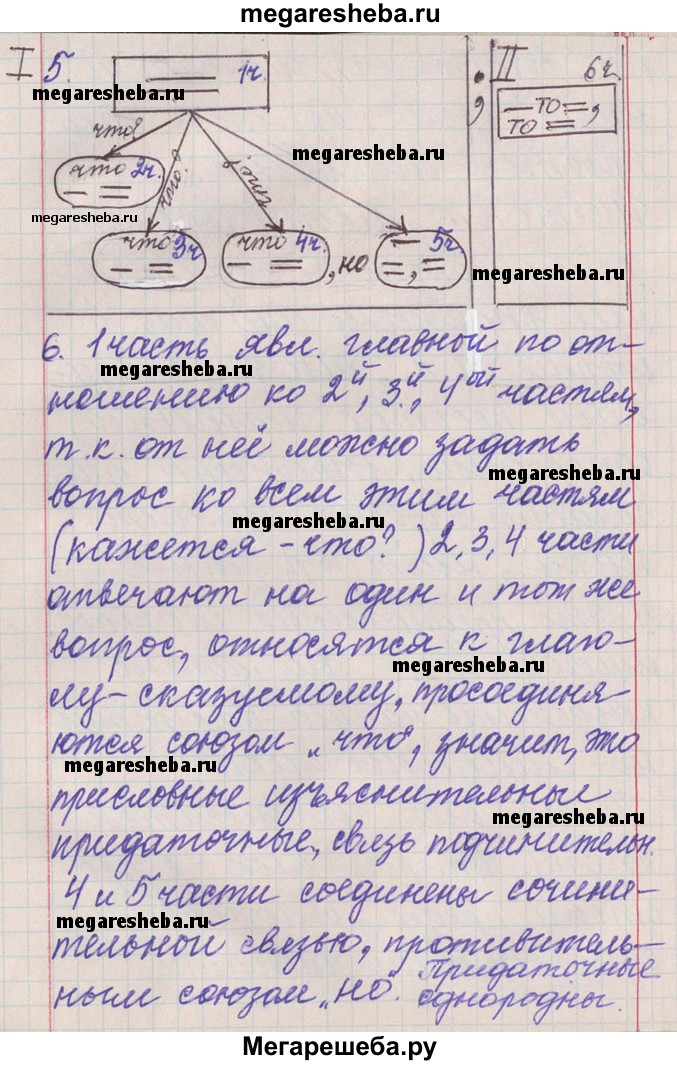 megaresheba.ru
I 5. 1ч. ; II 6ч.
megaresheba.ru
— то =,
то =
что?
megaresheba.ru
что 2ч.
что?
что?
megaresheba.ru
что 3ч
что 4ч
, но
5ч
megaresheba.ru
6. 1 часть явл. главной по от-
megaresheba.ru
ношению ко 2й, 3й, 4ой частям,
т.к. от неё можно задать
megaresheba.ru
вопрос ко всем этим частям
megaresheba.ru
(кажется - что?) 2, 3, 4 части
отвечают на один и тот же
вопрос, относятся к глаго-
megaresheba.ru
лу - сказуемому, присоединя-
ются союзом „что", значит, это
megaresheba.ru
присловные изъяснительные
megaresheba.ru
придаточные, связь подчинительн.
4 и 5 части соединены сочини-
megaresheba.ru
тельной связью, противитель-
ным союзом „но". Придаточные
однородны.
Мегарешеба.ру